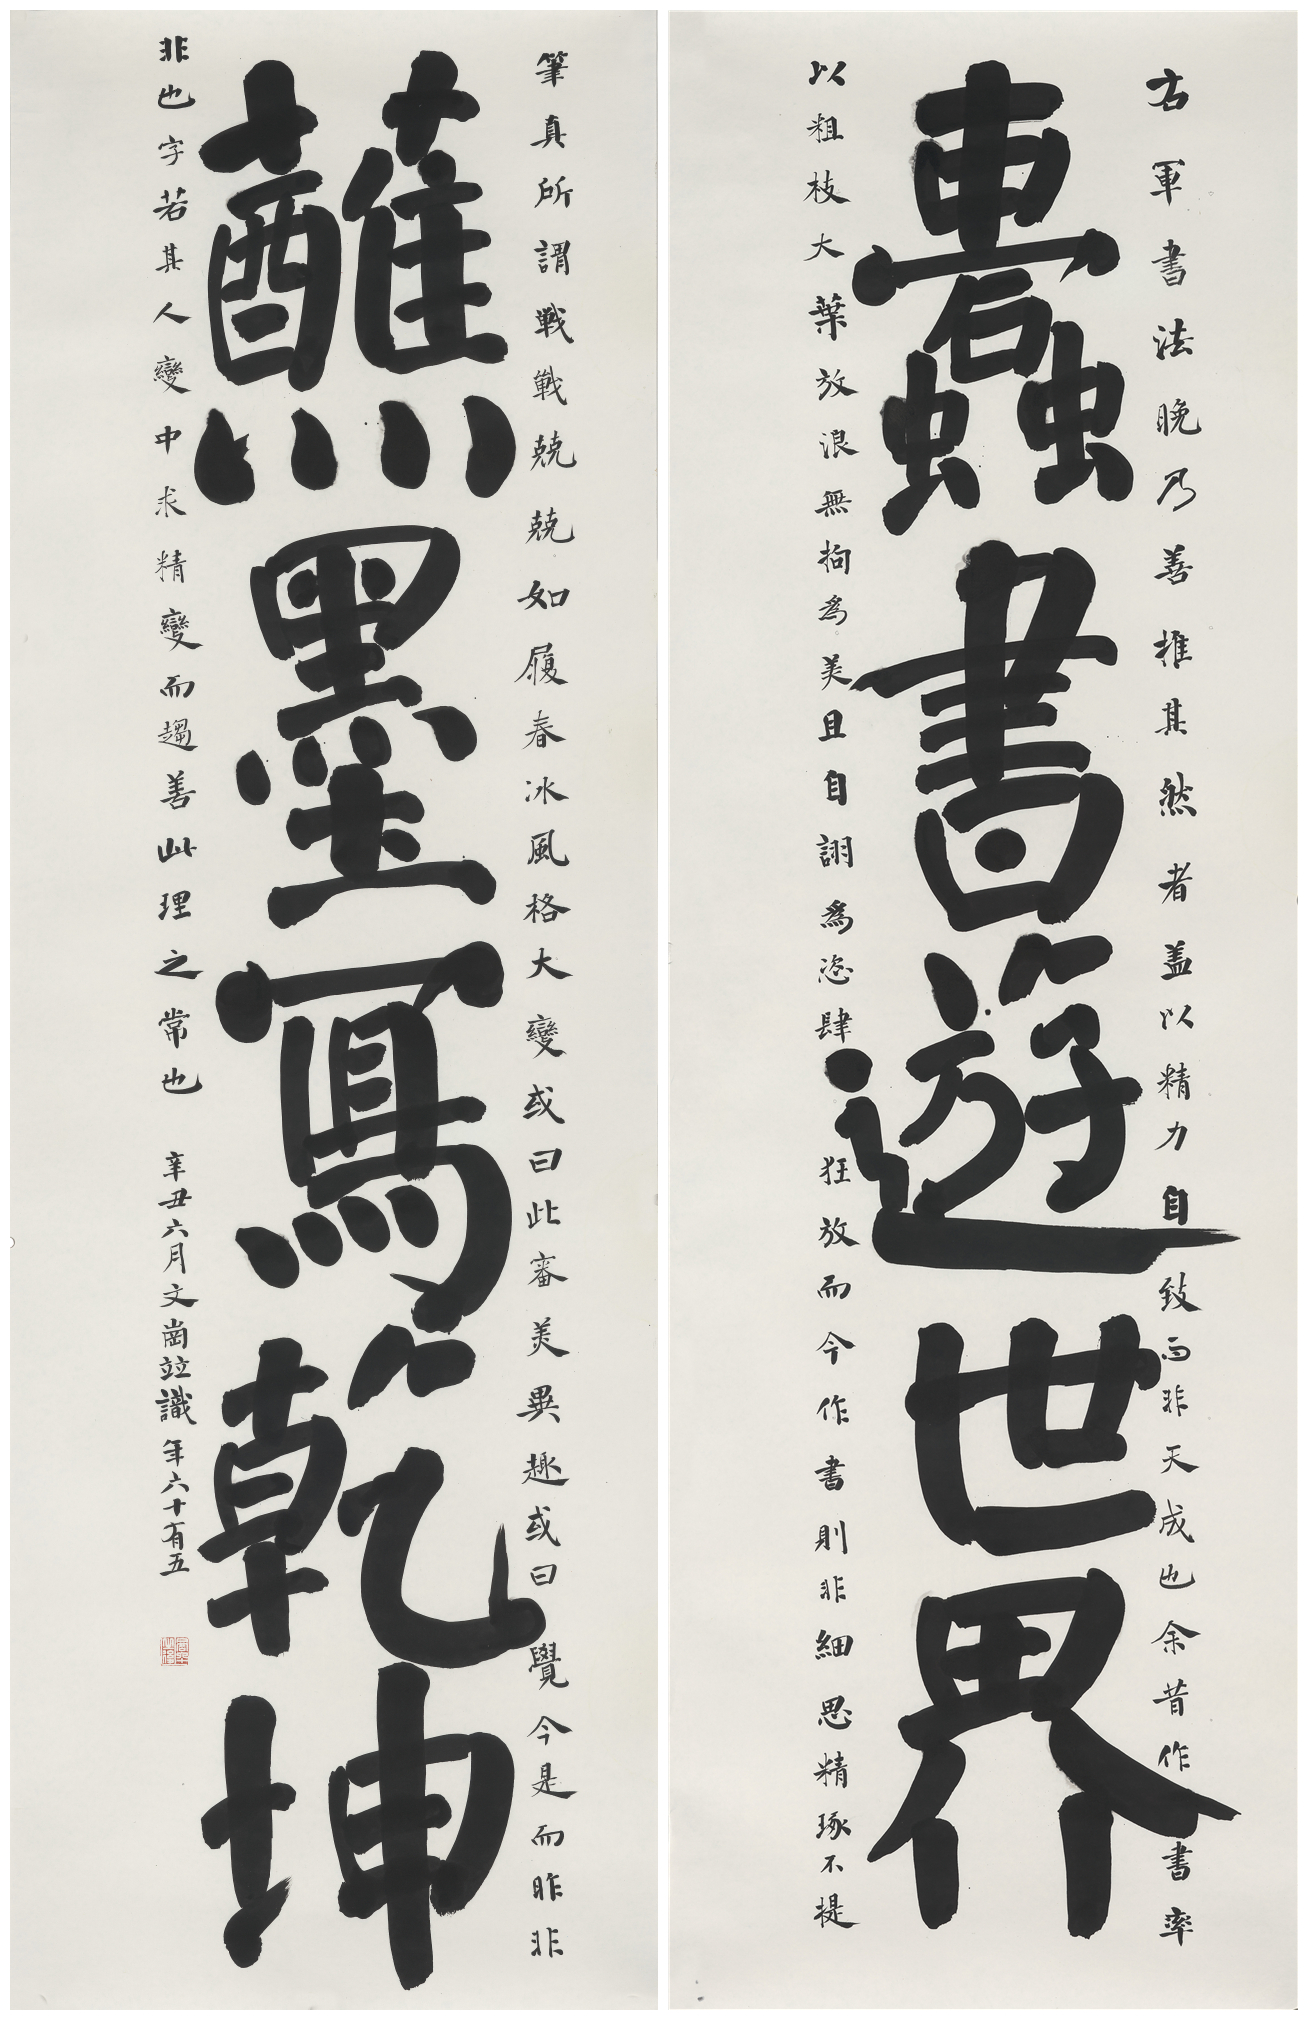 右軍書法晚乃善推其然者盖以精力自致而非天成也余昔作書率
蠹書遊世界
以粗枝大葉放浪無拘為美且自詡為恣肆狂放而今作書則非細思精琢不提
筆真所謂戰戰兢兢如履春冰風格大變或曰此審美異趣或曰覺今是而昨非
蘸墨寫乾坤
非也字若其人變中求精變而趨善此理之常也 辛丑六月文崗竝識年六十有五